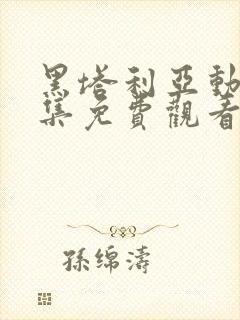 黑塔利亞動
集免費觀看
孫綿濤